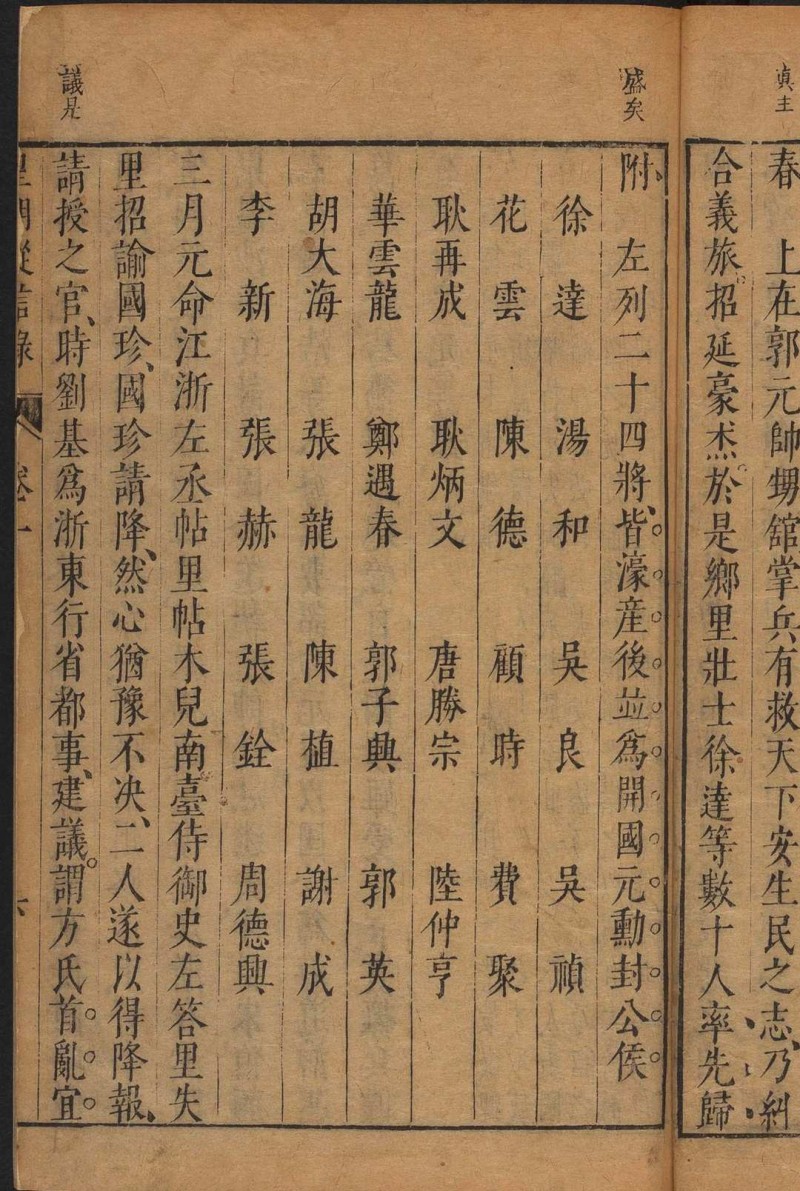 眞主
春　上在郭元帥甥舘掌兵有救天下安生民之志、乃糾
合義旅招延豪杰。於是鄉里壯士徐達等數十人率先歸
盛矣
附　左列二十四將、皆濠産後並爲開國元勳封公侯
徐達　湯和　吳良　吳禎
花雲　陳德　顧時　費聚
耿再成　耿炳文　唐勝宗　陸仲亨
華雲龍　鄭遇春　郭子興　郭英
胡大海　張龍　陳植　謝成
李新　張赫　張銓　周德興
三月元命江浙左丞帖里帖木兒南臺侍御史左答里失
里招諭國珍、國珍請降、然心猶豫不决、二人遂以得降報、
請授之官、時劉基爲浙東行省都事、建議。謂方氏首亂宜
議是
皇朝從信錄　卷一　六